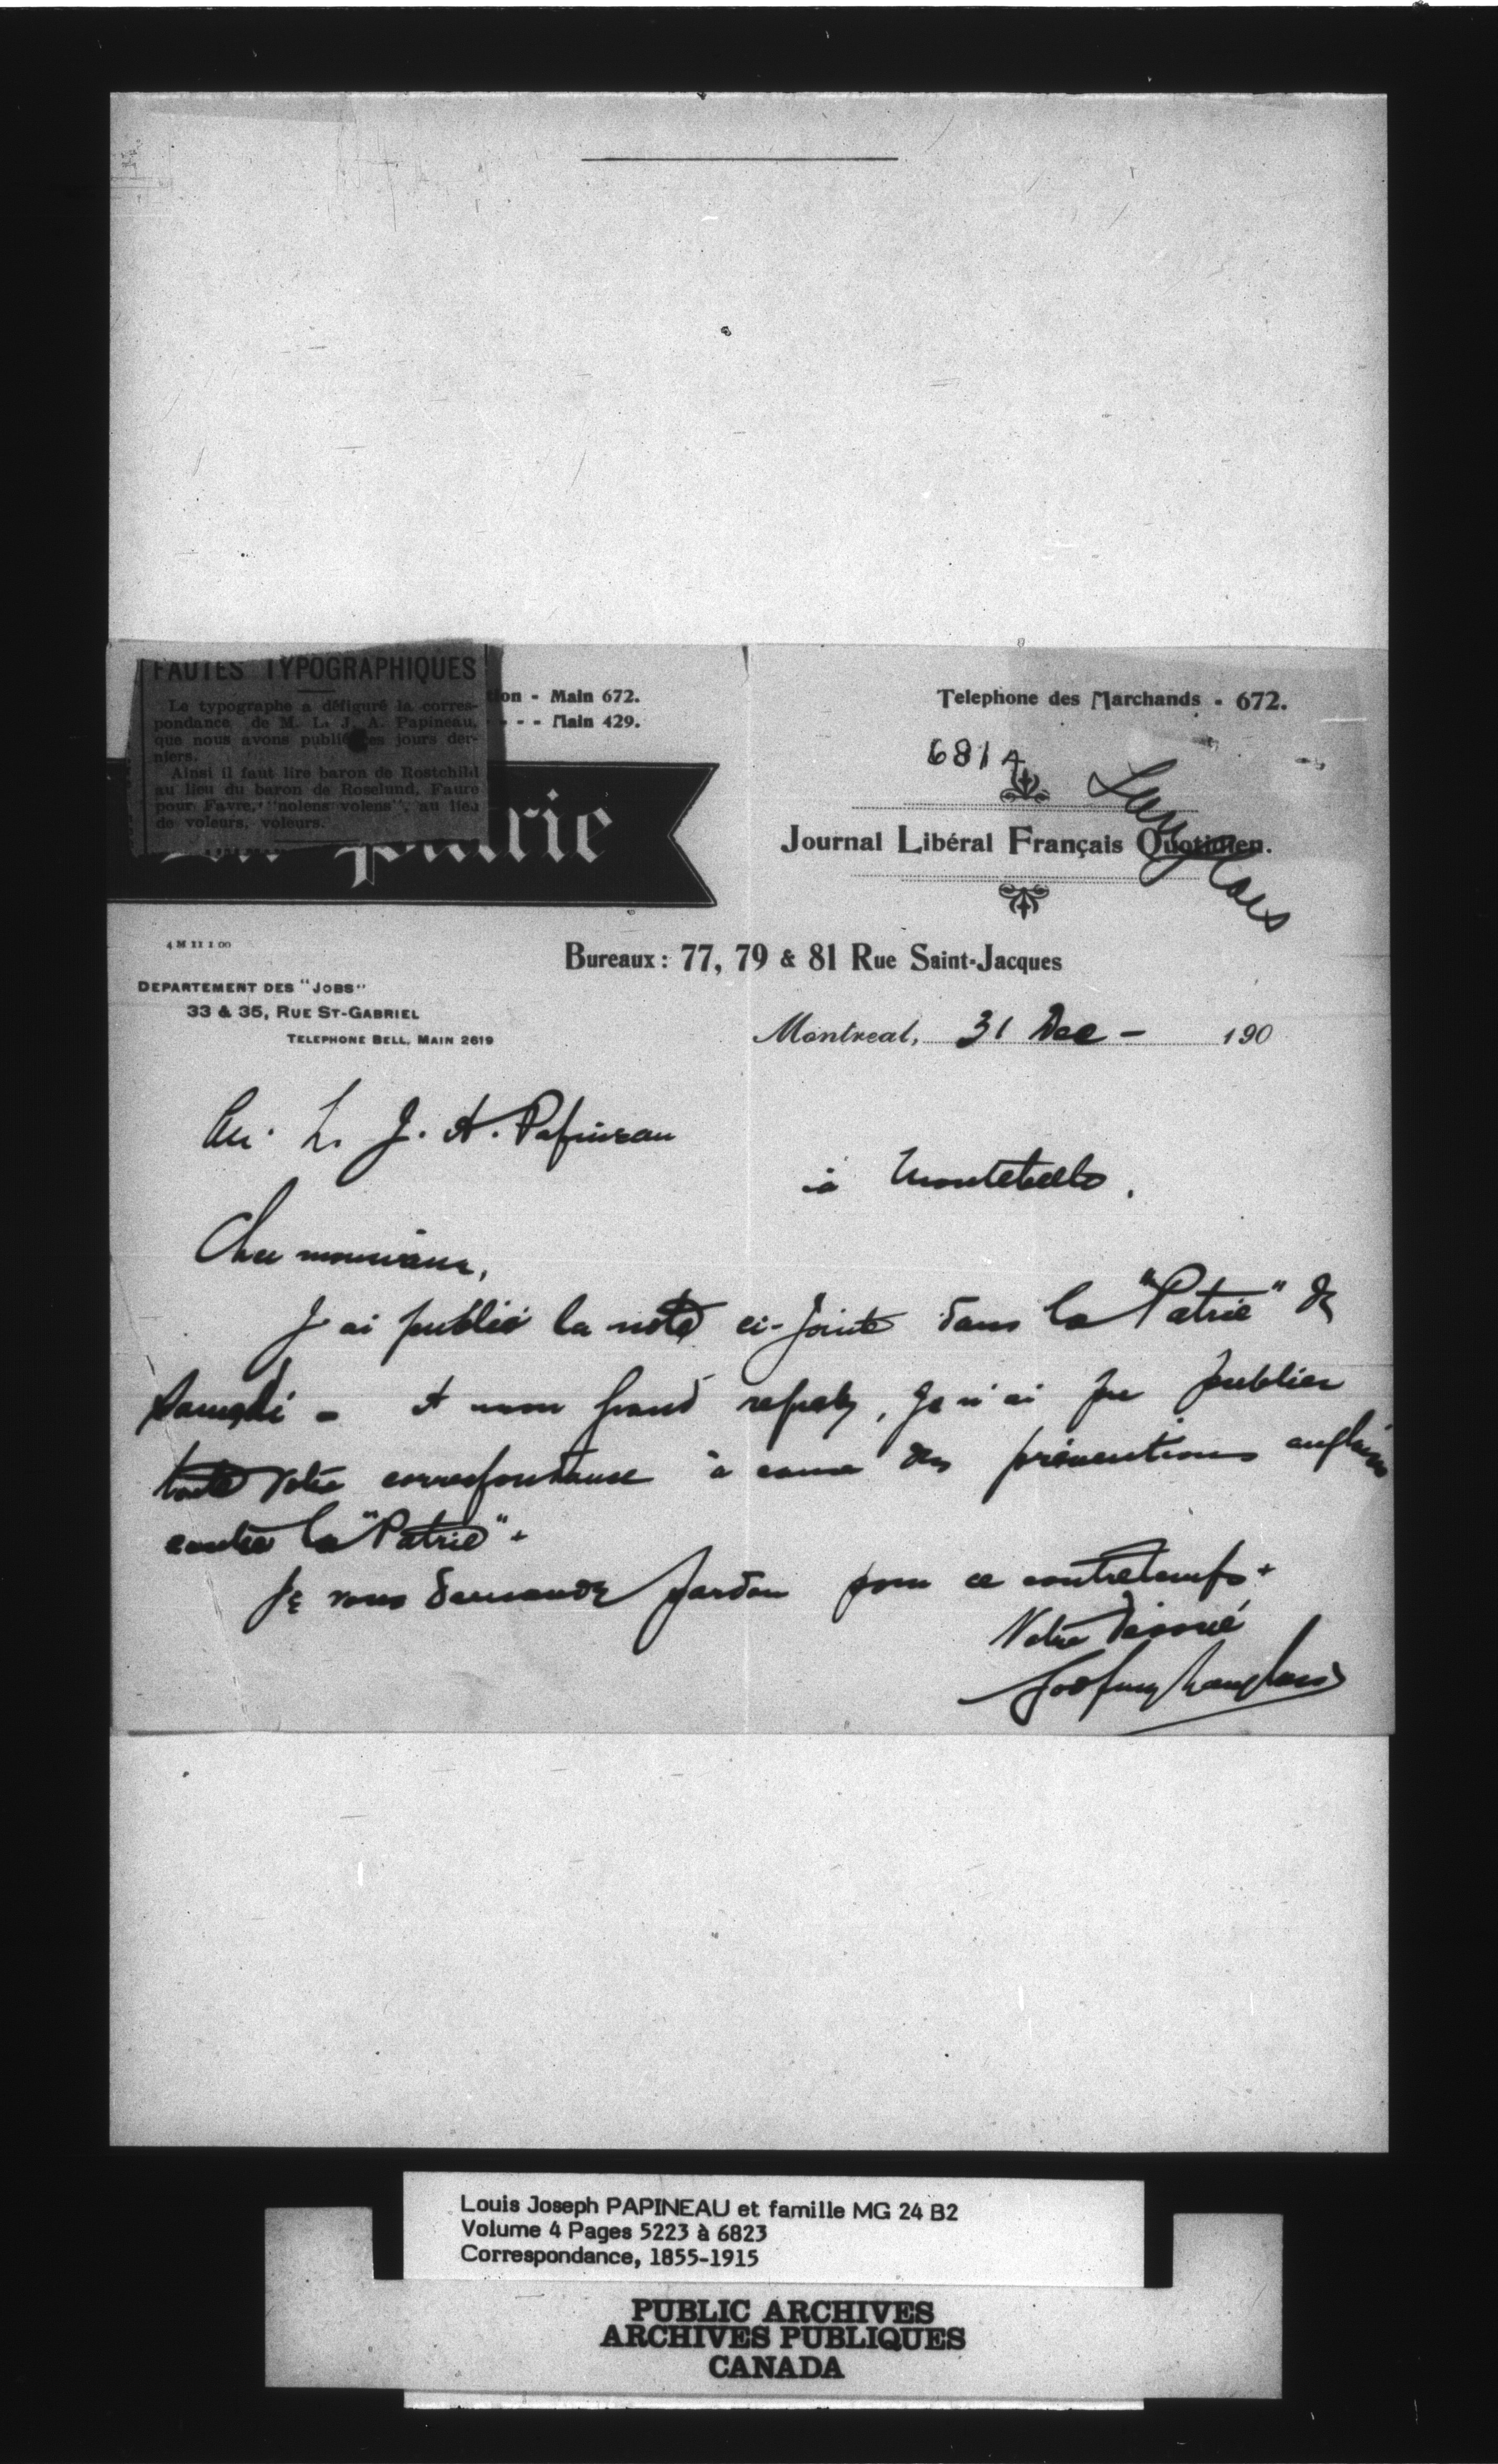 FAUTES TYPOGRAPHIQUES
Le typographe a défiguré la corres-
pondance de M. L. J. A. Papineau,
que nous avons publiée ces jours der-
niers.
Ainsi il faut lire baron de Rostchild
au lieu du baron de Roselund, Faure
pour Favre, "nolens volens", au lieu
de voleurs, voleurs.
tion - Main 672.
- - - Main 429.
Patrie
Telephone des Marchands - 672.
6814
Langlois
Journal Libéral Français Quotidien.
4 M 11 1 00
Bureaux : 77, 79 & 81 Rue Saint-Jacques
DEPARTEMENT DES "JOBS"
33 & 35, RUE ST-GABRIEL
TELEPHONE BELL, MAIN 2619
Montreal, 31 Dec - 190
L. J. A. Papineau
à Montebello.
Cher monsieur,
J'ai publié la note ci-jointe dans la "Patrie" de
Samedi - A mon grand regret, je n'ai pu publier
toute votre correspondance à cause des préventions anglaises
contre la "Patrie".
Je vous demande pardon pour ce contretemps.
Votre dévoué
Godfroy Langlois
Louis Joseph PAPINEAU et famille MG 24 B2
Volume 4 Pages 5223 à 6823
Correspondance, 1855-1915
PUBLIC ARCHIVES
ARCHIVES PUBLIQUES
CANADA